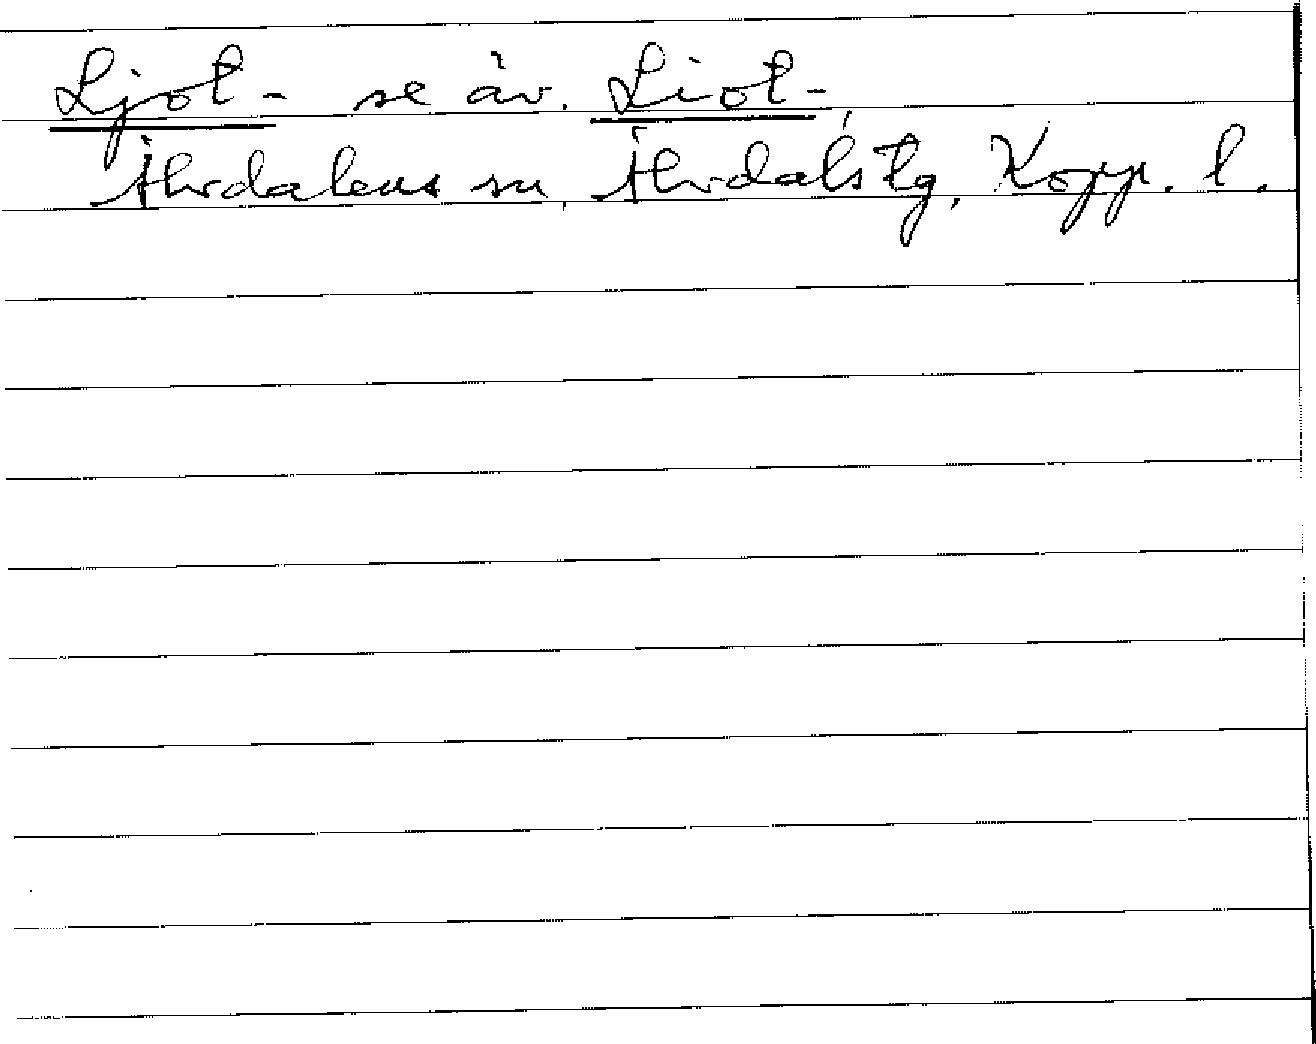 Ljot- se äv. Liot-
Älvdalens sn, Älvdals tg, Kopp. l.